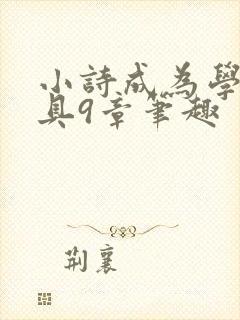 小詩成為學
具9章筆趣
荆襄